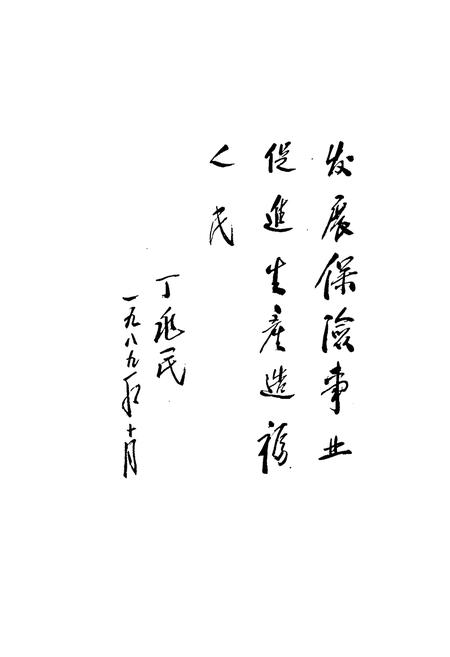 发展保險事业
促進生產造福
人民
丁兆民
一九八九年十月